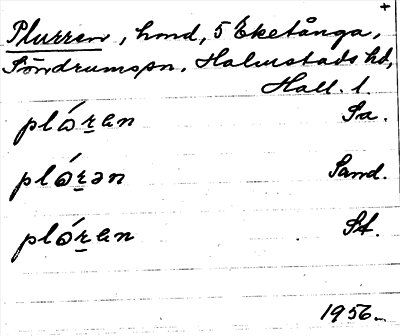 +
Plurren, hmd, 5 Eketånga,
Söndrums sn. Halmstads hd,
Hall. l.
plóran Sa.
plórən Sand.
plóran St.
1956